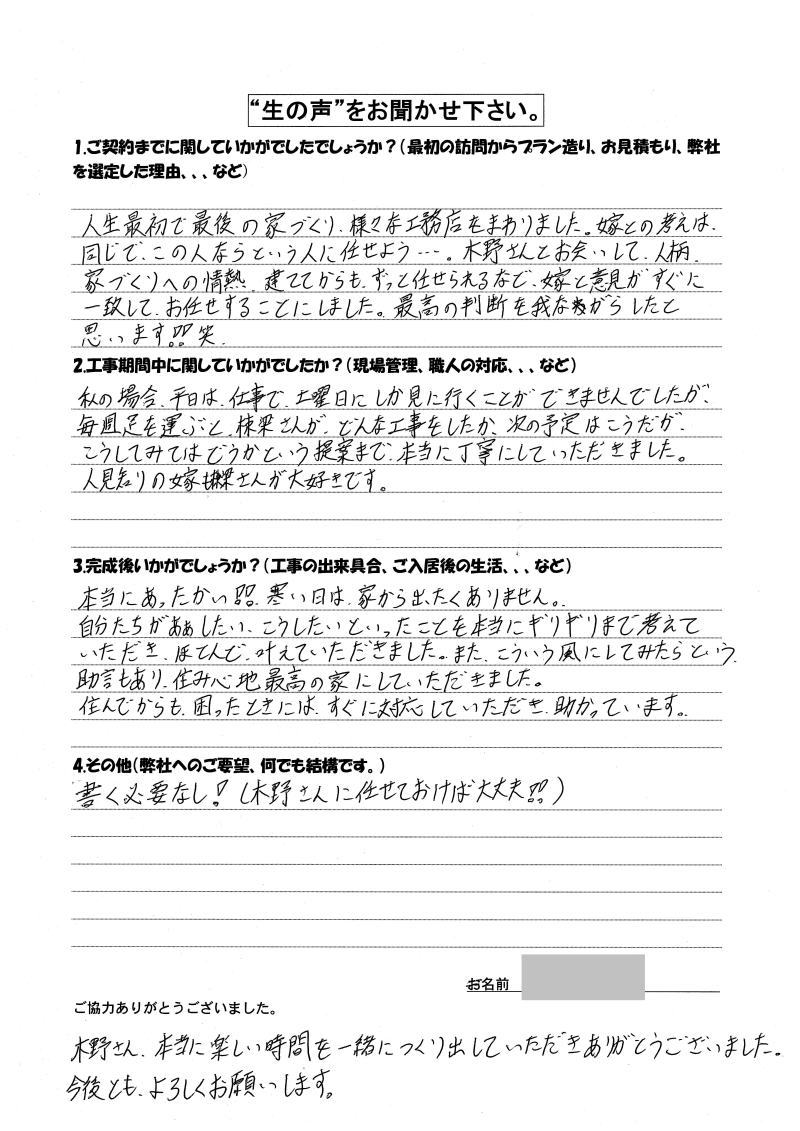 “生の声”をお聞かせ下さい。
1.ご契約までに関していかがでしたでしょうか？（最初の訪問からプラン造り、お見積もり、弊社
を選定した理由、、、など）
人生最初で最後の家づくり、様々な工務店をまわりました。嫁との考えは、
同じで、この人ならという人に任せよう…。木野さんとお会いして、人柄、
家づくりへの情熱、建ててからも、ずっと任せられるなど、嫁と意見がすぐに
一致して、お任せすることにしました。最高の判断を我ながらしたと
思います!!笑
2.工事期間中に関していかがでしたか？（現場管理、職人の対応、、、など）
私の場合、平日は、仕事で、土曜日にしか見に行くことができませんでしたが、
毎週足を運ぶと、棟梁さんが、どんな工事をしたか、次の予定はこうだが、
こうしてみてはどうかという提案まで、本当に丁寧にしていただきました。
人見知りの嫁も棟梁さんが大好きです。
3.完成後いかがでしょうか？（工事の出来具合、ご入居後の生活、、、など）
本当にあったかい!!、寒い日は、家から出たくありません。
自分たちがあぁしたい、こうしたいといったことを本当にギリギリまで考えて
いただき、ほとんど、叶えていただきました。また、こういう風にしてみたらという、
助言もあり、住み心地最高の家にしていただきました。
住んでからも、困ったときには、すぐに対応していただき、助かっています。
4.その他（弊社へのご要望、何でも結構です。）
書く必要なし！（木野さんに任せておけば大丈夫!!）
お名前
ご協力ありがとうございました。
木野さん、本当に楽しい時間を一緒につくり出していただきありがとうございました。
今後とも、よろしくお願いします。